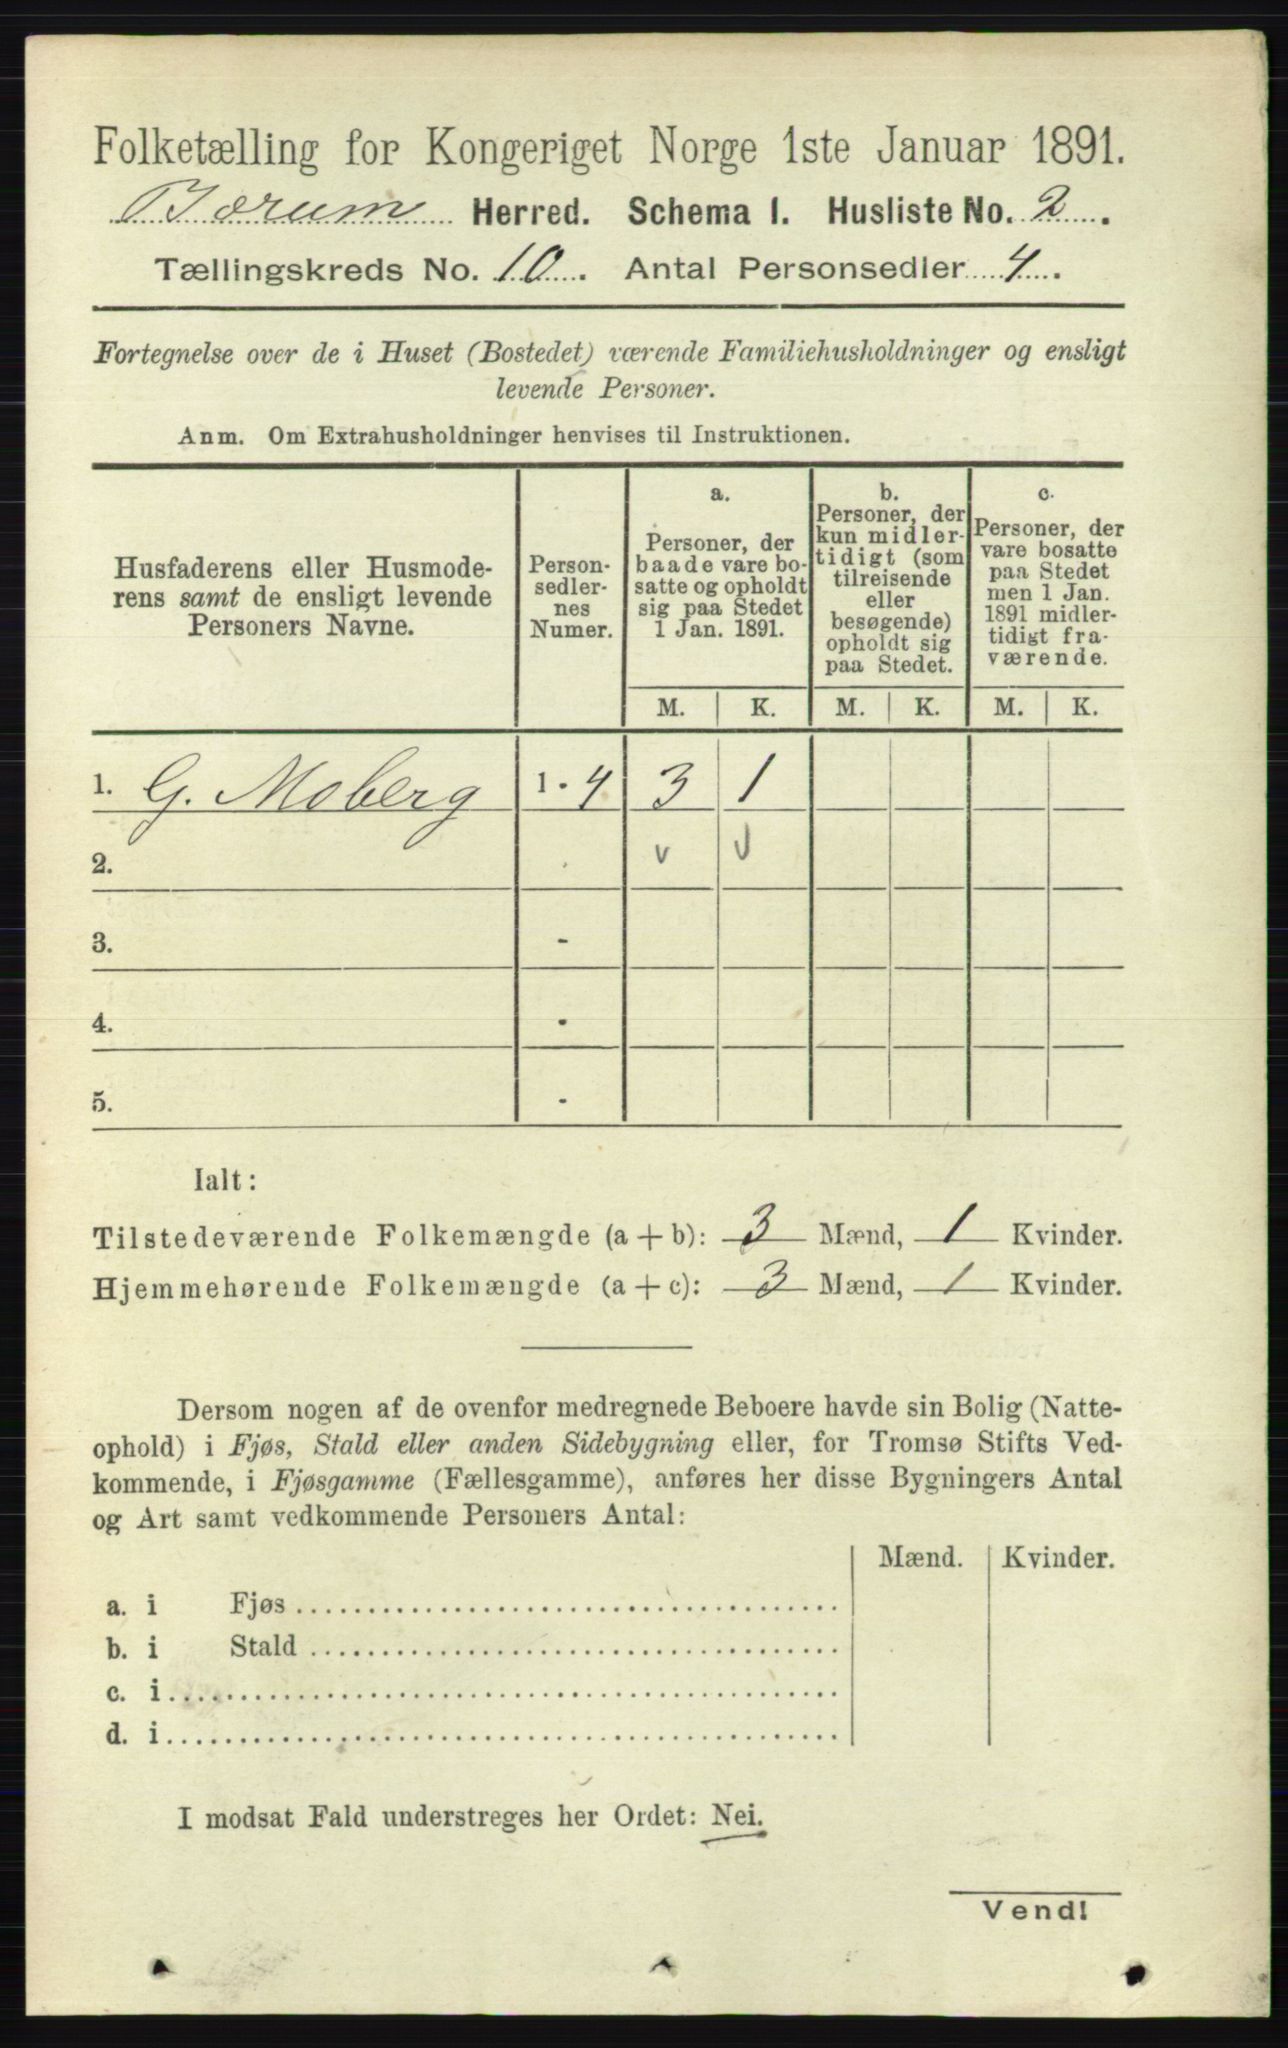 Folketælling for Kongeriget Norge 1ste Januar 1891.
Bærum Herred. Schema I. Husliste No. 2.
Tællingskreds No. 10. Antal Personsedler 4.
Fortegnelse over de i Huset (Bostedet) værende Familiehusholdninger og ensligt
levende Personer.
Anm. Om Extrahusholdninger henvises til Instruktionen.
Husfaderens eller Husmode-
rens samt de ensligt levende
Personers Navne.
Person-
sedler-
nes
Numer.
a.
Personer, der
baade vare bo-
satte og opholdt
sig paa Stedet
1 Jan. 1891.
b.
Personer, der
kun midler-
tidigt (som
tilreisende
eller
besøgende)
opholdt sig
paa Stedet.
c.
Personer, der
vare bosatte
paa Stedet
men 1 Jan.
1891 midler-
tidigt fra-
værende.
M. K. M. K. M. K.
1. G. Moberg 1 - 4 3 1
2. - v v
3. -
4. -
5. -
Ialt:
Tilstedeværende Folkemængde (a + b): 3 Mænd, 1 Kvinder.
Hjemmehørende Folkemængde (a + c): 3 Mænd, 1 Kvinder.
Dersom nogen af de ovenfor medregnede Beboere havde sin Bolig (Natte-
ophold) i Fjøs, Stald eller anden Sidebygning eller, for Tromsø Stifts Ved-
kommende, i Fjøsgamme (Fællesgamme), anføres her disse Bygningers Antal
og Art samt vedkommende Personers Antal:
Mænd. Kvinder.
a. i Fjøs
b. i Stald
c. i
d. i
I modsat Fald understreges her Ordet: Nei.
Vend!